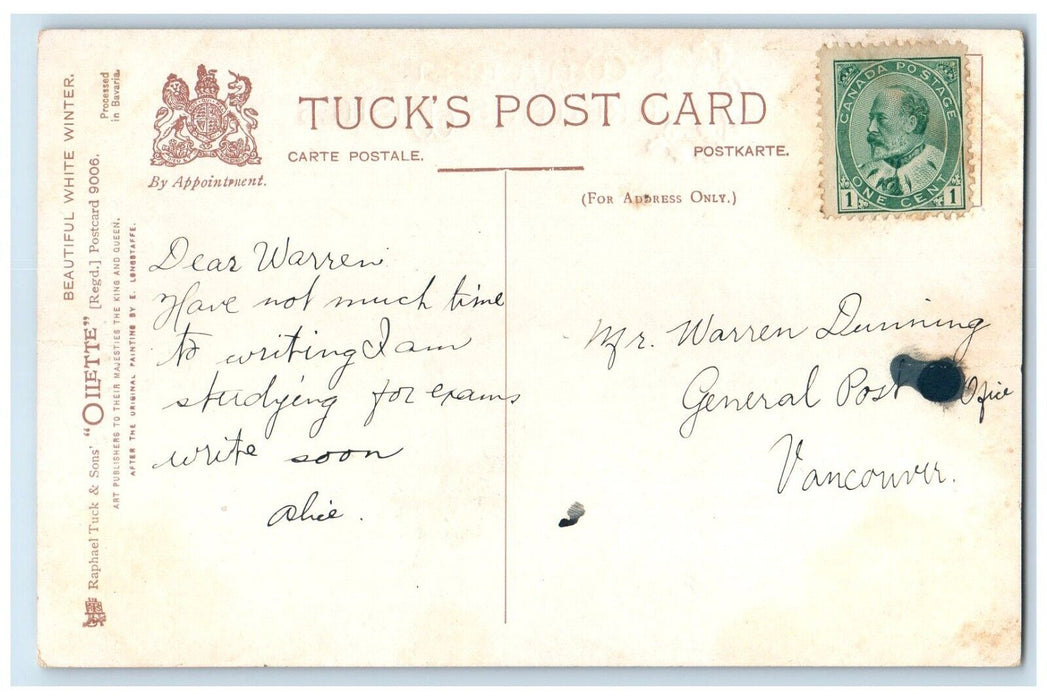 BEAUTIFUL WHITE WINTER.
Processed
in Bavaria.
Raphael Tuck & Sons' "OILETTE" [Regd.] Postcard 9006.
ART PUBLISHERS TO THEIR MAJESTIES THE KING AND QUEEN.
AFTER THE ORIGINAL PAINTING BY E. LONGSTAFFE.
By Appointment.
TUCK'S POST CARD
CARTE POSTALE.
POSTKARTE.
(For Address Only.)
CANADA POSTAGE
ONE CENT
1 1
Dear Warren
Have not much time
to writing I am
studying for exams
write soon
Alice.
Mr. Warren Dunning
General Post Ofice
Vancouver.